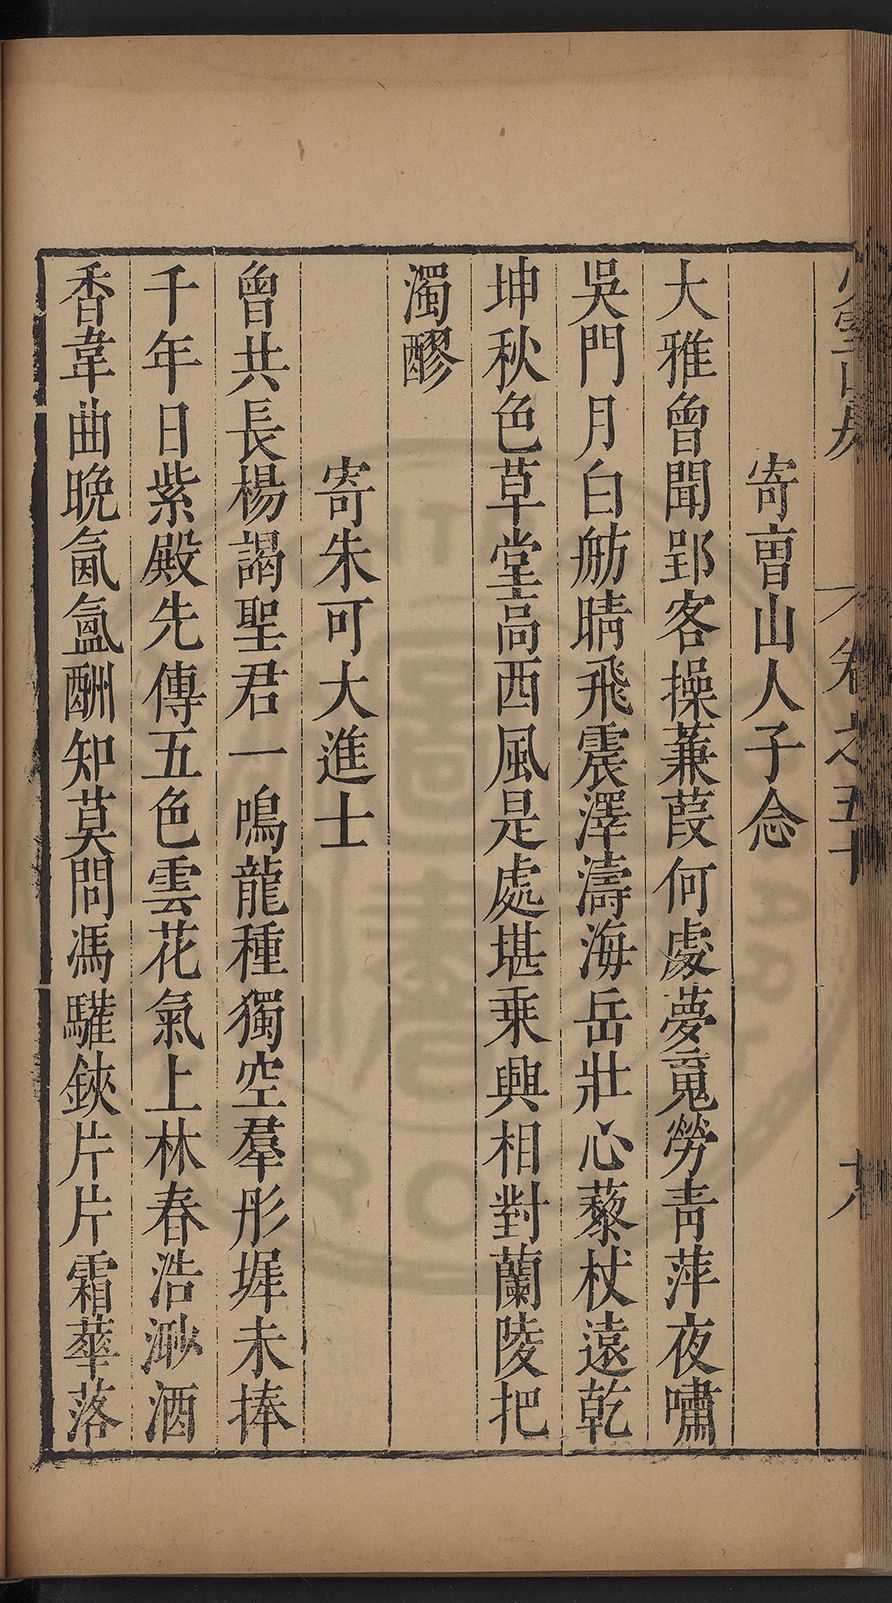 卷之五十
寄曺山人子念
大雅曾聞郢客操蒹葭何處夢䰟勞青萍夜嘯
吳門月白舫晴飛震澤濤海岳壯心藜杖遠乾
坤秋色草堂高西風是處堪乘興相對蘭陵把
濁醪
寄朱可大進士
曾共長楊謁聖君一鳴龍種獨空羣彤墀未捧
千年日紫殿先傳五色雲花氣上林春浩渺酒
香韋曲晚氤氲酬知莫問馮驩鋏片片霜華落